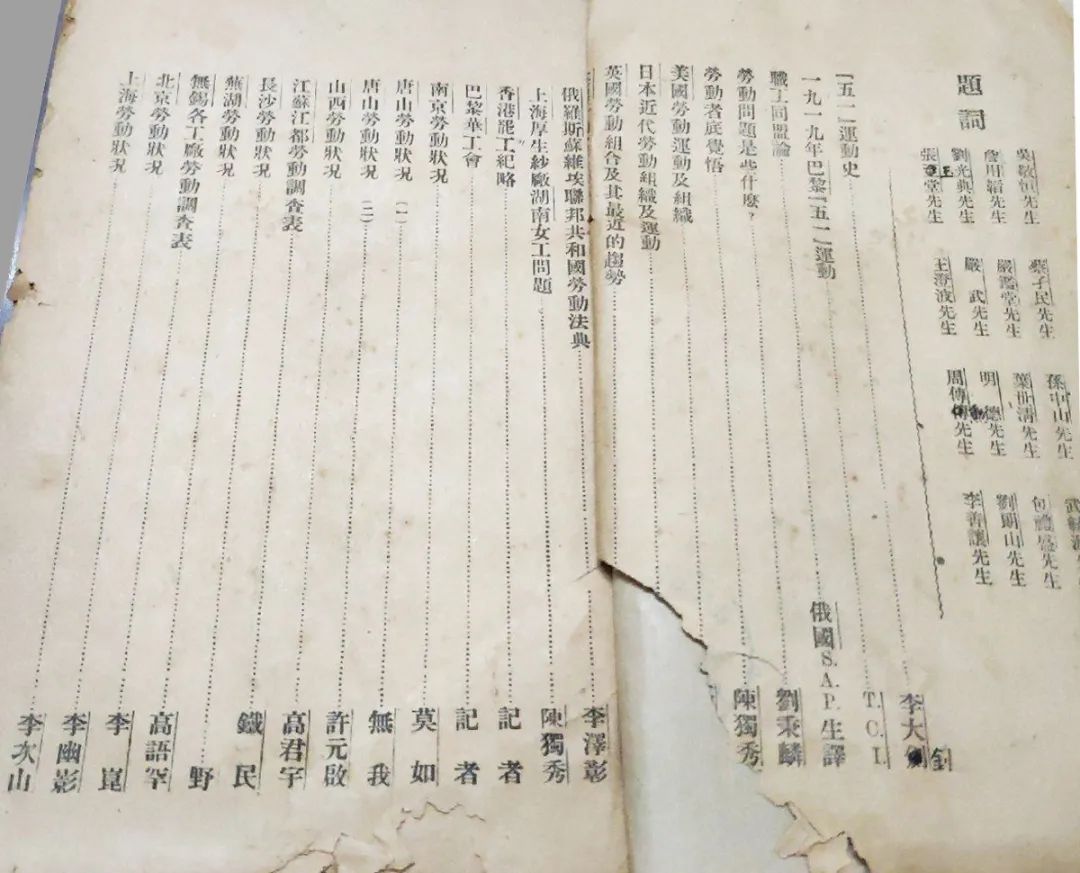 題詞
吳敬恒先生 蔡子民先生 孫中山先生
嚴鑑堂先生
劉光典先生 嚴武先生 明德先生 劉朗山先生
王澄波先生 李善讓先生
「五一」運動史 李大釗
一九一九年巴黎「五一」運動 T.C.I.
職工同盟論 俄國S.A.P.生譯
勞動問題是些什麼? 劉秉麟
勞動者底覺悟 陳獨秀
美國勞動運動及組織
日本近代勞動組織及運動
英國勞動組合及其最近的趨勢
俄羅斯蘇維埃聯邦共和國勞動法典 李澤彰
上海厚生紗廠湖南女工問題 陳獨秀
香港罷工紀略 記者
巴黎華工會 記者
南京勞動狀况 莫如
唐山勞動狀况(一) 無我
唐山勞動狀况(二) 許元啟
山西勞動狀况 高君宇
江蘇江都勞動調查表 鐵民
長沙勞動狀况 野
蕪湖勞動狀况 高語罕
無錫各工廠勞動調查表 李崑
北京勞動狀况 李幽影
上海勞動狀况 李次山